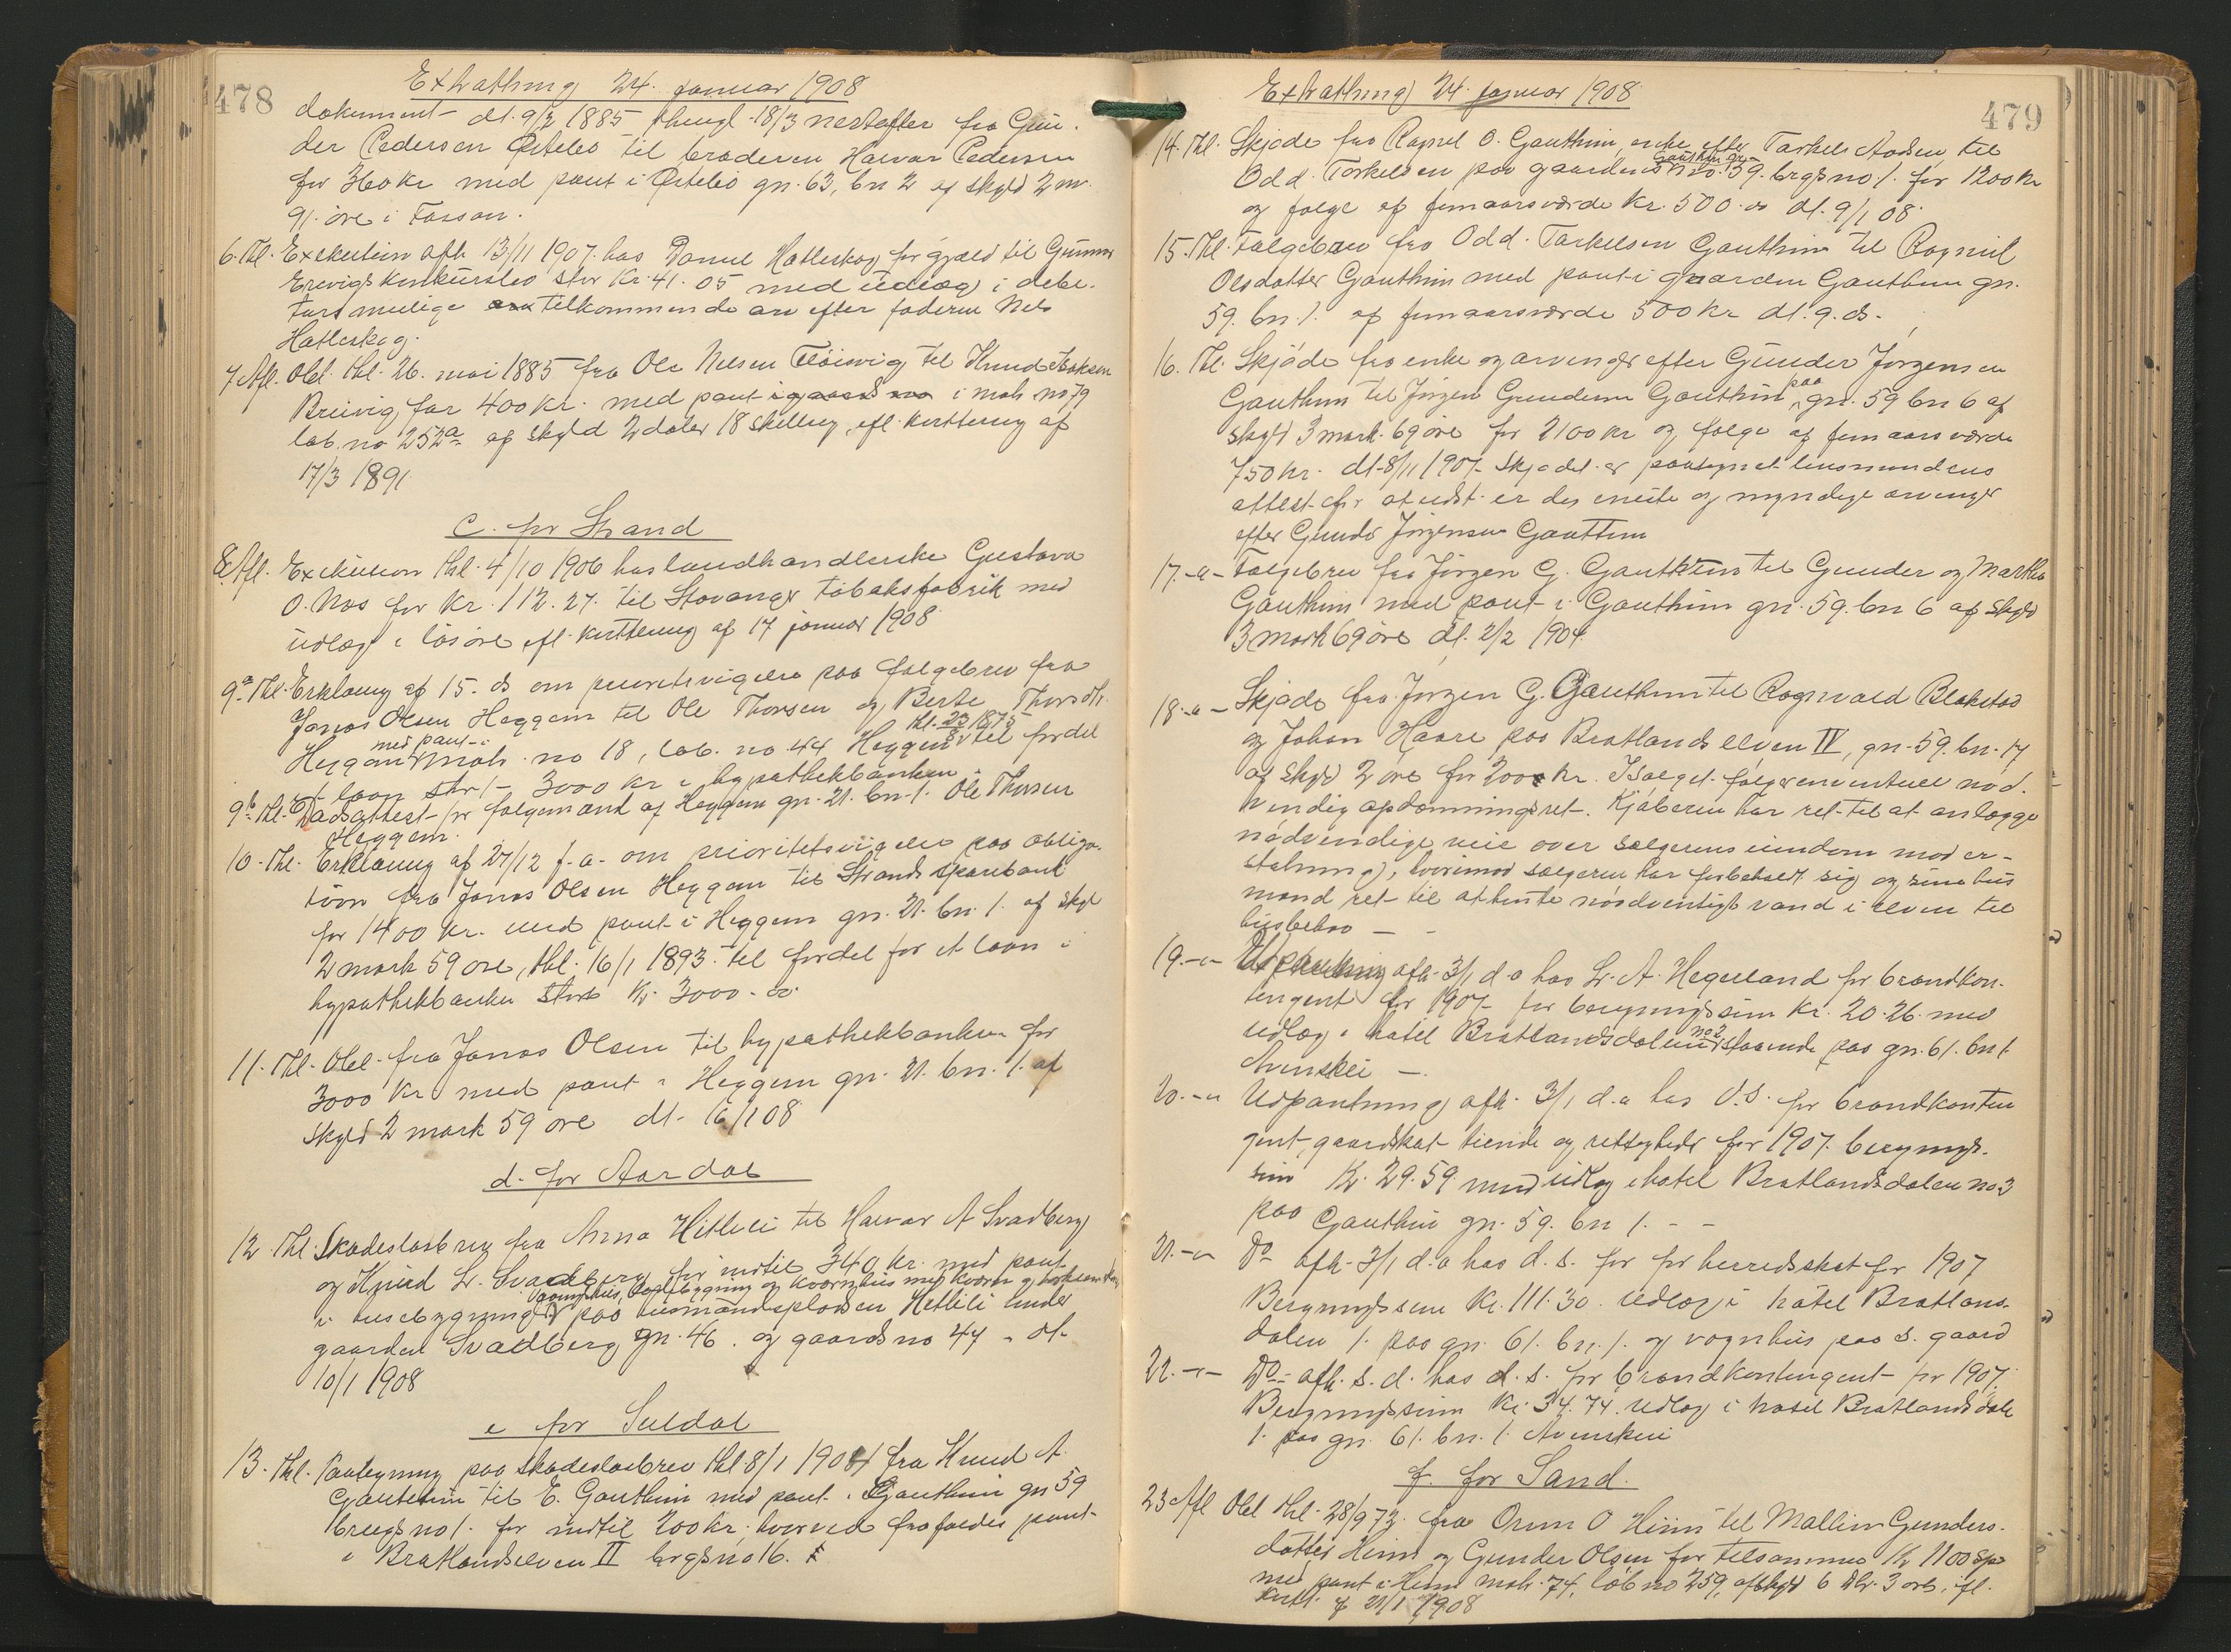 478
Extrathing 24. januar 1908
dokument dt. 9/2 1885 thingl. 18/3 nestefter fra Gun-
der Pedersen Østebø til broderen Halvar Pedersen
for 360 Kr med pant i Østebø gn. 63, bn 2 af skyld 2 m.
91 øre i Fossan.
6. Thl. Exekution afh 13/11 1907 hos Daniel Hatleskog for gjæld til Gunnar
Erevigs konkursbo stor Kr. 41.05 med udlæg i debi-
tors mulige tilkommende arv efter faderen Nels
Hatleskog.
7 Afl. Obl. thl. 26. mai 1885 fra Ole Nelsen Fløiwig til Knud Isaksen
Breivig for 400 Kr. med pant i gaards no i matr no 79
løb. no 252a af skyld 2 daler 18 skilling, efl. kvittering af
17/3 1891
c. for Strand
8. Afl. Exekution thl. 4/10 1906 hos landhandlerske Gustava
O. Nos for Kr. 112.27. til Stavanger tobaksfabrik med
udlæg i løsøre efl. kvittering af 17 januar 1908
9a Thl. Erklæring af 15. ds om prioritetsvigelse paa følgebrev fra
Jonas Olsen Heggem til Ole Thorsen og Berte Thorsdtr.
Heggem med pant i matr. no 18, løb. no 44 Heggem thl. 23/8 1875 til fordel
f. laan stort 3000 Kr i hypothekbanken.
9b Thl. Dødsattest for følgemand af Heggem gn. 21. bn. 1. Ole Thorsen
Heggem.
10. Thl. Erklæring af 27/12 f. a. om prioritetsvigelse paa obliga-
tion fra Jonas Olsen Heggem til Strands sparebank
for 1400 Kr. med pant i Heggem gn. 21. bn. 1. af skyld
2 mark 59 øre, thl. 16/1 1893. til fordel for et laan i
hypothekbanken stort Kr. 3000.00
11. Thl. Obl. fra Jonas Olsen til hypothekbanken for
3000 Kr med pant i Heggem gn. 21. bn. 1. af
skyld 2 mark 59 øre dt. 16/1 08
d. for Aardal
12. Thl. Skadesløsbrev fra Anna Hetleli til Halvar A Svadberg
og Knud L. Svadberg for indtil 340 kr. med pant
i husebygning, og kværnhus med kværn paa husmandspladsen Hetleli under
gaarden Svadberg gn. 46. og gaards no 47 dt.
10/1 1908
e for Suldal
13. Thl. Paategning paa skadesløsbrev thl. 8/1 1904 fra Knud A.
Gauthun til E. Gauthun med pant i Gauthun gn 59
brugs no 1. for indtil 200 kr. hvorved frafaldes pant
i Bratlandselven II brgs no 16.
479
Extrathing 24. januar 1908
14. Thl. Skjøde fra Ragnil O. Gauthun, enke efter Torkels Aadsen, til
Odd Torkelsen paa gaarden Gauthun gr. no. 59. brgs no. 1. for 1200 Kr
og følge af femaarsværde Kr. 500.00 dt. 9/1 08
15. Thl. Følgebrev fra Odd Torkelsen Gauthun til Ragnil
Olsdatter Gauthun med pant i gaarden Gauthun gn.
59. bn. 1. af femaarsværde 500 Kr dt. 9. ds.
16. Thl. Skjøde fra enke og arvinger efter Gunder Jørgensen
Gauthun til Jørgen Gundersen Gauthun paa gn. 59 bn 6 af
skyld 3 mark 69 øre for 2100 kr og følge af femaarsværde
750 kr. dt. 8/11 1907. Skjødet er paategnet lensmandens
attest for at udst. er de eneste og myndige arvinger
efter Gunder Jørgensen Gauthun
17. -"- Følgebrev fra Jørgen G. Gauthun til Gunder og Martha
Gauthun med pant i Gauthun gn. 59. bn 6 af skyld
3 mark 69 øre dt. 2/2 1904
18. -"- Skjøde fra Jørgen G. Gauthun til Ragnvald Blakstad
og Johan Haare paa Bratlandselven IV, gn. 59. bn. 17
af skyld 2 øre for 200 Kr. I salget følger eventuel nød-
vendig opdæmningsret. Kjøberen har ret til at anlægge
nødvendige veie over sælgerens eiendom mod er-
statning, hvorimod sælgeren har forbeholdt sig og sine hus
mænd ret til at hente nødvendigt vand i elven til
husbehov —
19. -"- Udpantning afh. 3/1 d. a hos L. A. Hegerland for brandkon-
tingent for 1907 for bergningssum Kr. 20.26 med
udlæg i hotel Bratlandsdalen no 2 staaende paa gn. 61. bn 1.
Avenskei —.
20. -"- Udpantning afh. 3/1 d. a hos d. s. for brandkontin
gent, gaardskat tiende og rettigheder for 1907. bergnings-
sum Kr. 29.59 med udlæg i hotel Bratlandsdalen no 3
paa Gauthun gn. 59. bn 1. - -
21. -"- Do afh. 3/1 d. a hos d. s. for herredsskat for 1907
Bergningssum Kr. 111.30. Udlæg i hotel Bratlands-
dalen 1. paa gn. 61. bn. 1. og vognhus paa s. gaard
22. -"- Do afh. s. d. hos d. s. for brandkontingent for 1907.
Bergningssum Kr. 34.74. Udlæg i hotel Bratlandsdale
1. paa gn. 61. bn. 1. Avenskei
f. for Sand.
23 Afl Obl thl. 28/9 72. fra Orm O Hiim til Mallin Gunders-
datter Hiim og Gunder Olsen for tilsammen Kr 1100 Sp
med pant i Hiim matr. 74, løb no 259, af skyld 6 dlr. 3 ort. ifl.
kvitt. af 21/1 1908